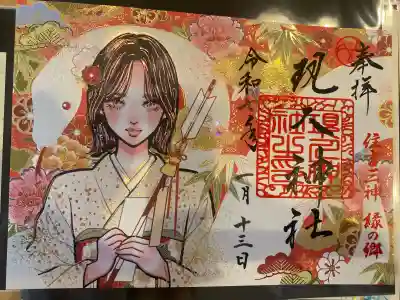 奉拝
住吉三神 縁の郷
現人神社
令和七年
一月十三日